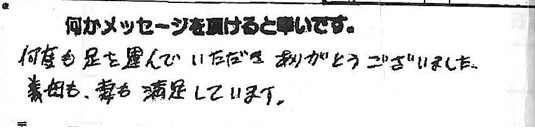 何かメッセージを頂けると幸いです。
何度も足を運んでいただき ありがとうございました。
義母も、妻も 満足しています。